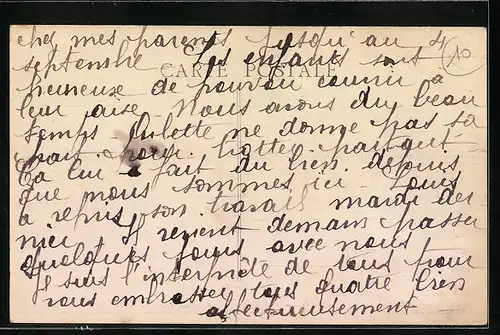 chez mes parents jusqu'au 4
septembre Les enfants sont
CARTE POSTALE
heureuse de pouvoir courir a
leur aise. Nous avons du beau
temps Julette ne donne pas sa
part. trotter partout
Ça lui a fait du bien depuis
que nous sommes ici. Louis
a repris son travail mardi der
nier Il revient demain passer
quelques jours avec nous
Je suis l'interprète de tous pour
vous embrasser tous quatre bien
affectueusement
10